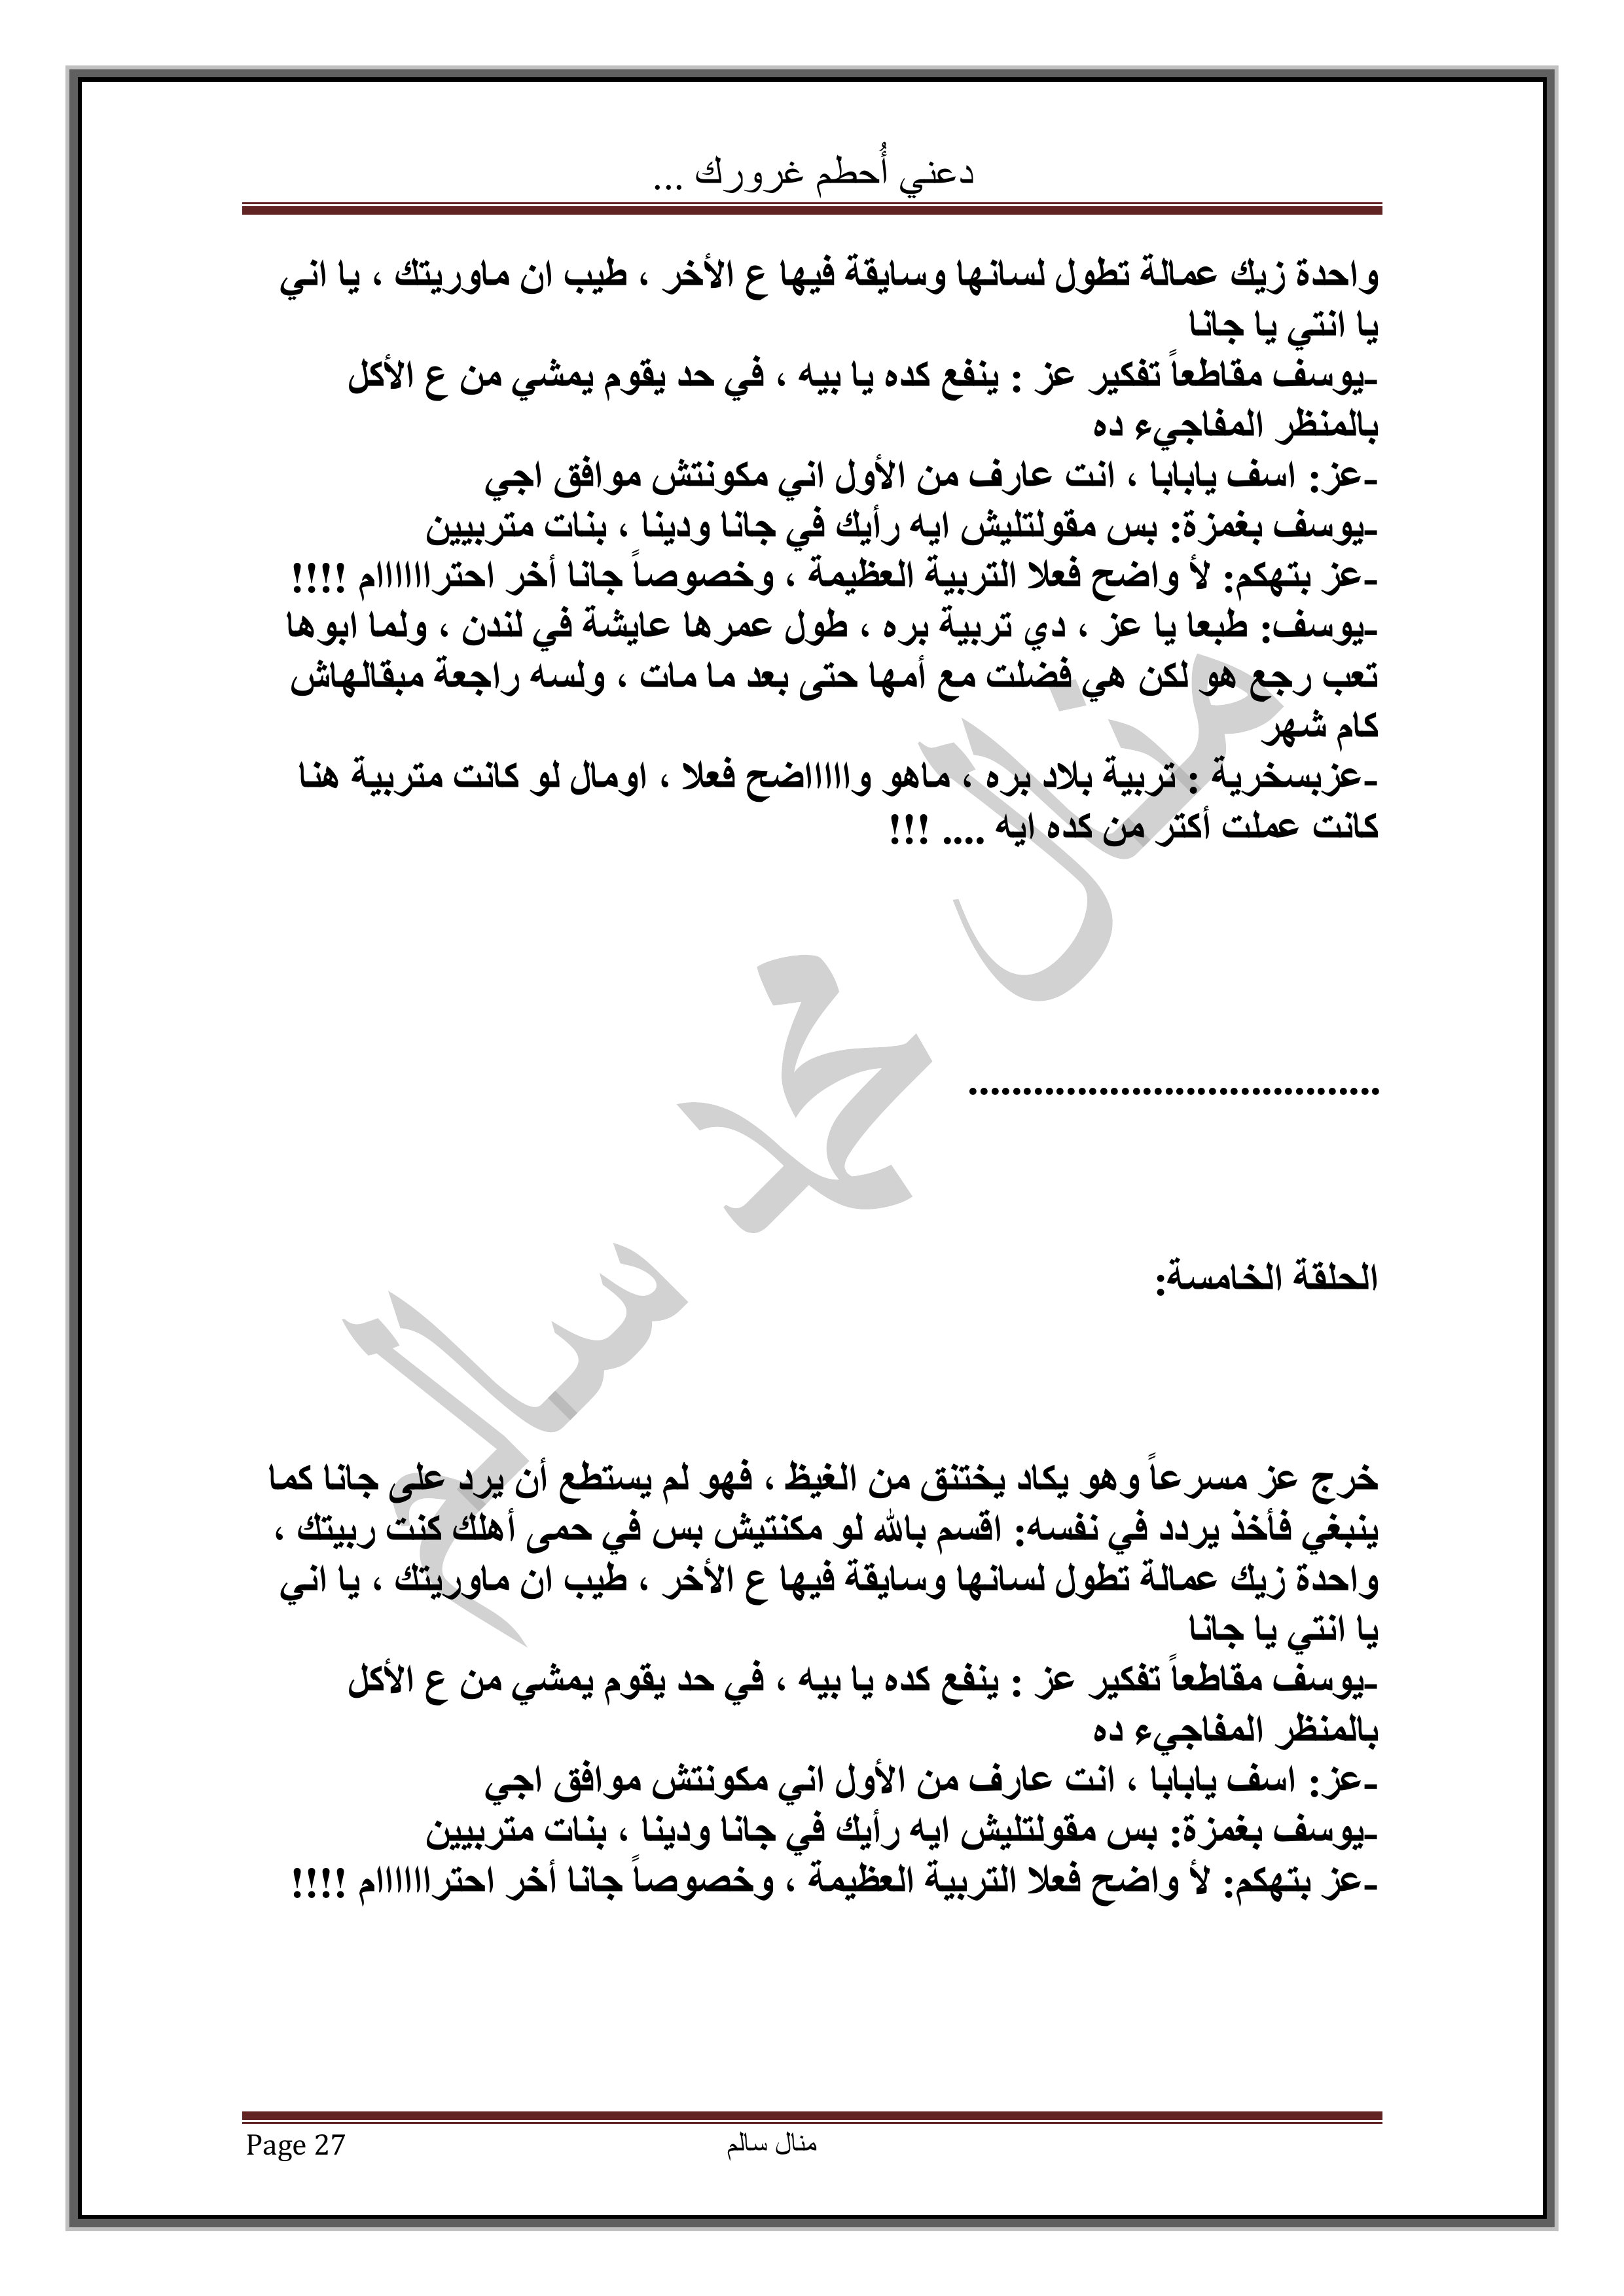 دعني أُحطم غرورك ...
واحدة زيك عمالة تطول لسانها وسايقة فيها ع الأخر ، طيب ان ماوريتك ، يا اني
يا انتي يا جانا
-يوسف مقاطعاً تفكير عز : ينفع كده يا بيه ، في حد يقوم يمشي من ع الأكل
بالمنظر المفاجيء ده
-عز: اسف يابابا ، انت عارف من الأول اني مكونتش موافق اجي
-يوسف بغمزة: بس مقولتليش ايه رأيك في جانا ودينا ، بنات متربيين
-عز بتهكم: لأ واضح فعلا التربية العظيمة ، وخصوصاً جانا أخر احتراااااام !!!!
-يوسف: طبعا يا عز ، دي تربية بره ، طول عمرها عايشة في لندن ، ولما ابوها
تعب رجع هو لكن هي فضلت مع أمها حتى بعد ما مات ، ولسه راجعة مبقالهاش
كام شهر
-عزبسخرية : تربية بلاد بره ، ماهو واااااضح فعلا ، اومال لو كانت متربية هنا
كانت عملت أكتر من كده ايه .... !!!
......................................
الحلقة الخامسة:
خرج عز مسرعاً وهو يكاد يختنق من الغيظ ، فهو لم يستطع أن يرد على جانا كما
ينبغي فأخذ يردد في نفسه: اقسم بالله لو مكنتيش بس في حمى أهلك كنت ربيتك ،
واحدة زيك عمالة تطول لسانها وسايقة فيها ع الأخر ، طيب ان ماوريتك ، يا اني
يا انتي يا جانا
-يوسف مقاطعاً تفكير عز : ينفع كده يا بيه ، في حد يقوم يمشي من ع الأكل
بالمنظر المفاجيء ده
-عز: اسف يابابا ، انت عارف من الأول اني مكونتش موافق اجي
-يوسف بغمزة: بس مقولتليش ايه رأيك في جانا ودينا ، بنات متربيين
-عز بتهكم: لأ واضح فعلا التربية العظيمة ، وخصوصاً جانا أخر احتراااااام !!!!
منال محمد سالم
Page 27 منال سالم